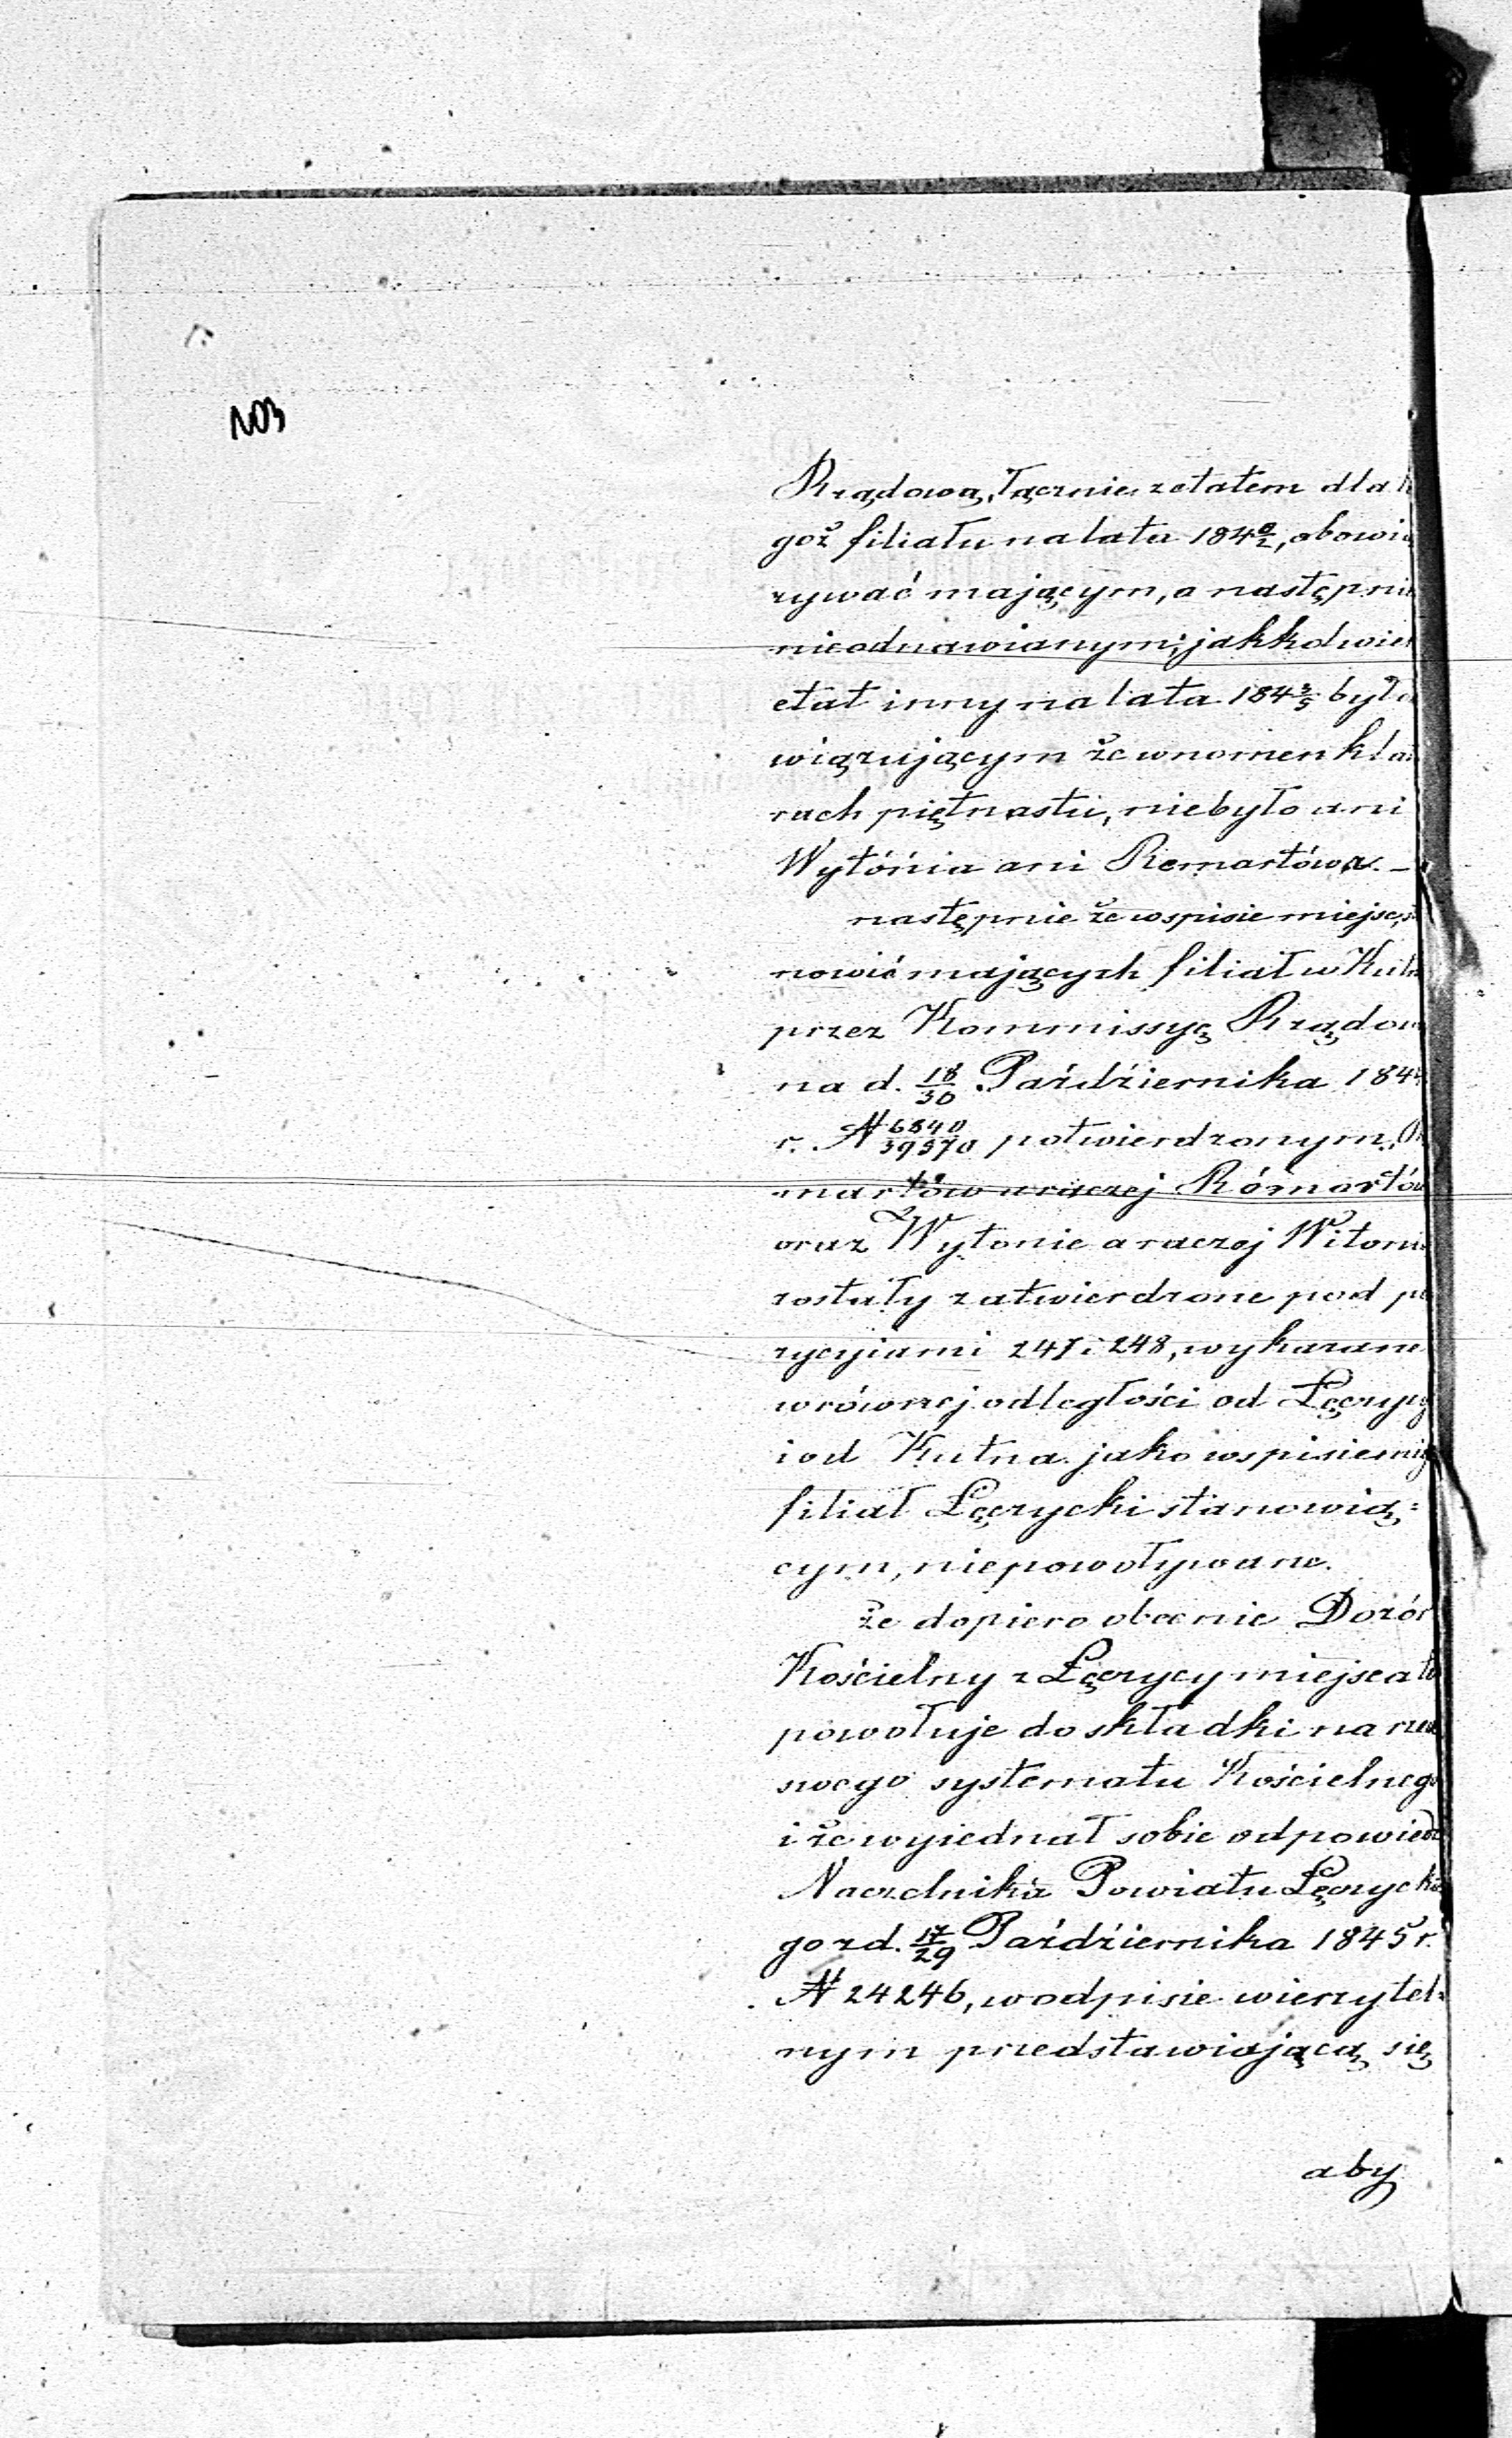 103
Rządową, łącznie z etatem dla t
goż filiału na lata 184 0/2, obowią
zywać mającym, a następnie
nieodnawianym; jakkolwiek
etat inny na lata 184 3/5 był o
wiązującym że w nomenklat
rach piętnastu, niebyło ani
Wytónia ani Remartówa. –
następnie że w spisie miejsc, st
nowić mających filiał w Kutn
przez Kommissyę Rządow
na d. 18/30 Października 184
r. N 6840/39570 potwierdzonym,
martów a raczej Rómartów
oraz Wytonie a raczej Witoni
zostały zatwierdzone pod po
zycyiami 247 i 248, wykazane
w równej odległości od Łęczycy
i od Kutna jako w spisie miejsc
filiał Łęczycki stanowią=
cym, niepowoływane.
że dopiero obecnie Dozór
Kościelny z Łęczycy miejsca te
powołuje do składki na rzecz
swego systematu Kościelnego
i że wyjednał sobie odpowiedź
Naczelnika Powiatu Łęczyckie
go z d. 17/29 Października 1845 r.
N 24246, w odpisie wierzytel=
nym przedstawiającą się
aby